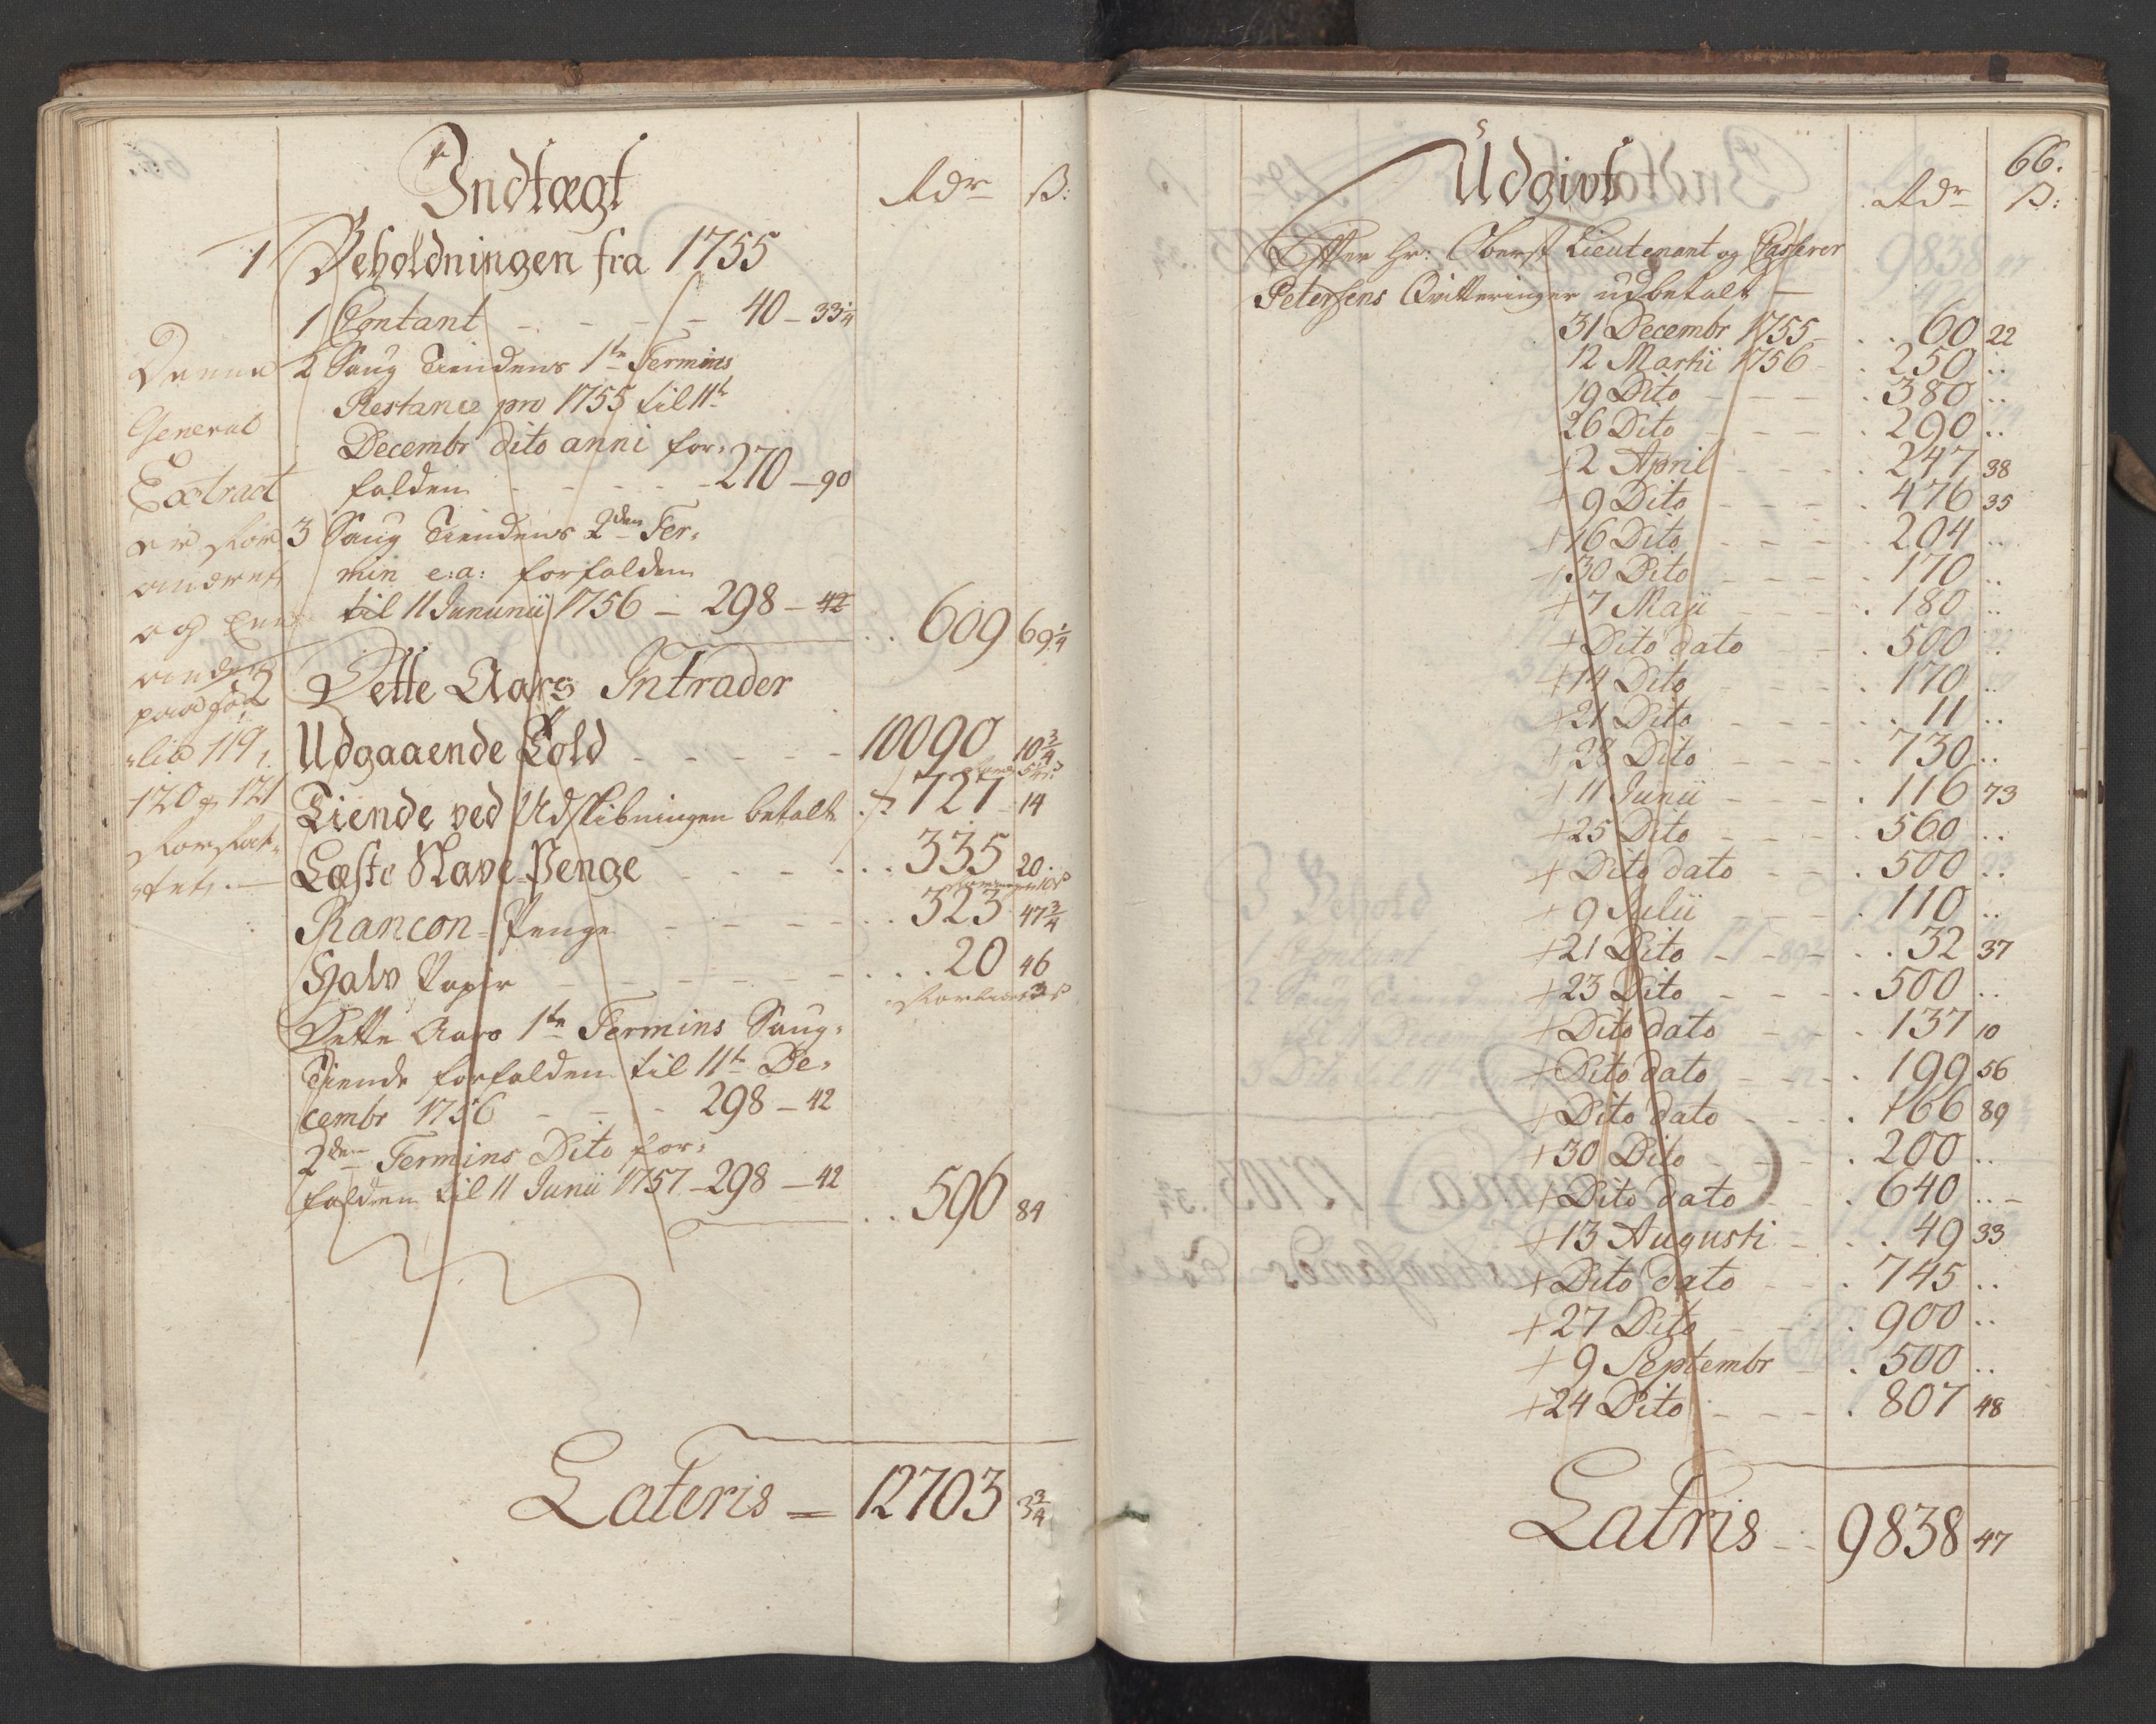 Indtægt
Rdr ß:
1 Beholdningen fra 1755
1 Contant - - - - 40 - 33 1/4
2 Saug Tiendens 1te Termins
Restance pro 1755 til 11te
Decembr dito anni for-
falden - - - - 270 - 90
3 Saug Tiendens 2den Ter-
min e:a: forfalden
til 11 Jununii 1756 - 298 - 42
.. 609 69 1/4
Denne
General
Extract
er
og
119,
120 & 121
2 Dette Aars Intrader
Udgaaende Told - - - - 10090 10 3/4
Tiende ved Udskibningen betalt 727 14
Læste Slave Penge - - - 335 20
Rancon-Penge - - - - 323 47 3/4
Halv Papir - - - - - 20 46
Dette Aars 1te Termins Saug-
Tiende forfalden til 11te De-
cembr 1756 - - - 298 - 42
2den Termins Dito for-
falden til 11 Junii 1757 - 298 - 42
.. 596 84
Lateris = 12703 3 3/4
66.
Udgivt
Rdr ß:
Efter Hr: Oberst Lieutenant og Casserer
Petersens Qvitteringer udbetalt -
31 Decembr 1755 - .. 60 22
12 Martii 1756 - . 250 ..
19 Dito - - - . 380 ..
26 Dito - - - . 290 ..
+ 2 April - - - . 247 38
+ 9 Dito - - - . 476 35
+ 16 Dito - - - . 204 ..
+ 30 Dito - - - . 170 ..
+ 7 Maii - - - . 180 ..
+ Dito dato - - . 500 ..
+ 14 Dito - - - . 170 ..
+ 21 Dito - - - .. 11 ..
+ 28 Dito - - - . 730 ..
+ 11 Junii - - - . 116 73
+ 25 Dito - - - . 560 ..
+ Dito dato - - . 500 ..
+ 9 Julii - - - . 110 ..
+ 21 Dito - - - .. 32 37
+ 23 Dito - - - . 500 ..
+ Dito dato - - . 137 10
+ Dito dato - - - . 199 56
+ Dito dato - - . 166 89
+ 30 Dito - - - . 200 ..
+ Dito dato - - . 640 ..
+ 13 Augusti - .. 49 33
+ Dito dato - - . 745 ..
+ 27 Dito - - . 900 ..
+ 9 Septembr - . 500 ..
+ 24 Dito - - - . 807 48
Latris - 9838 47